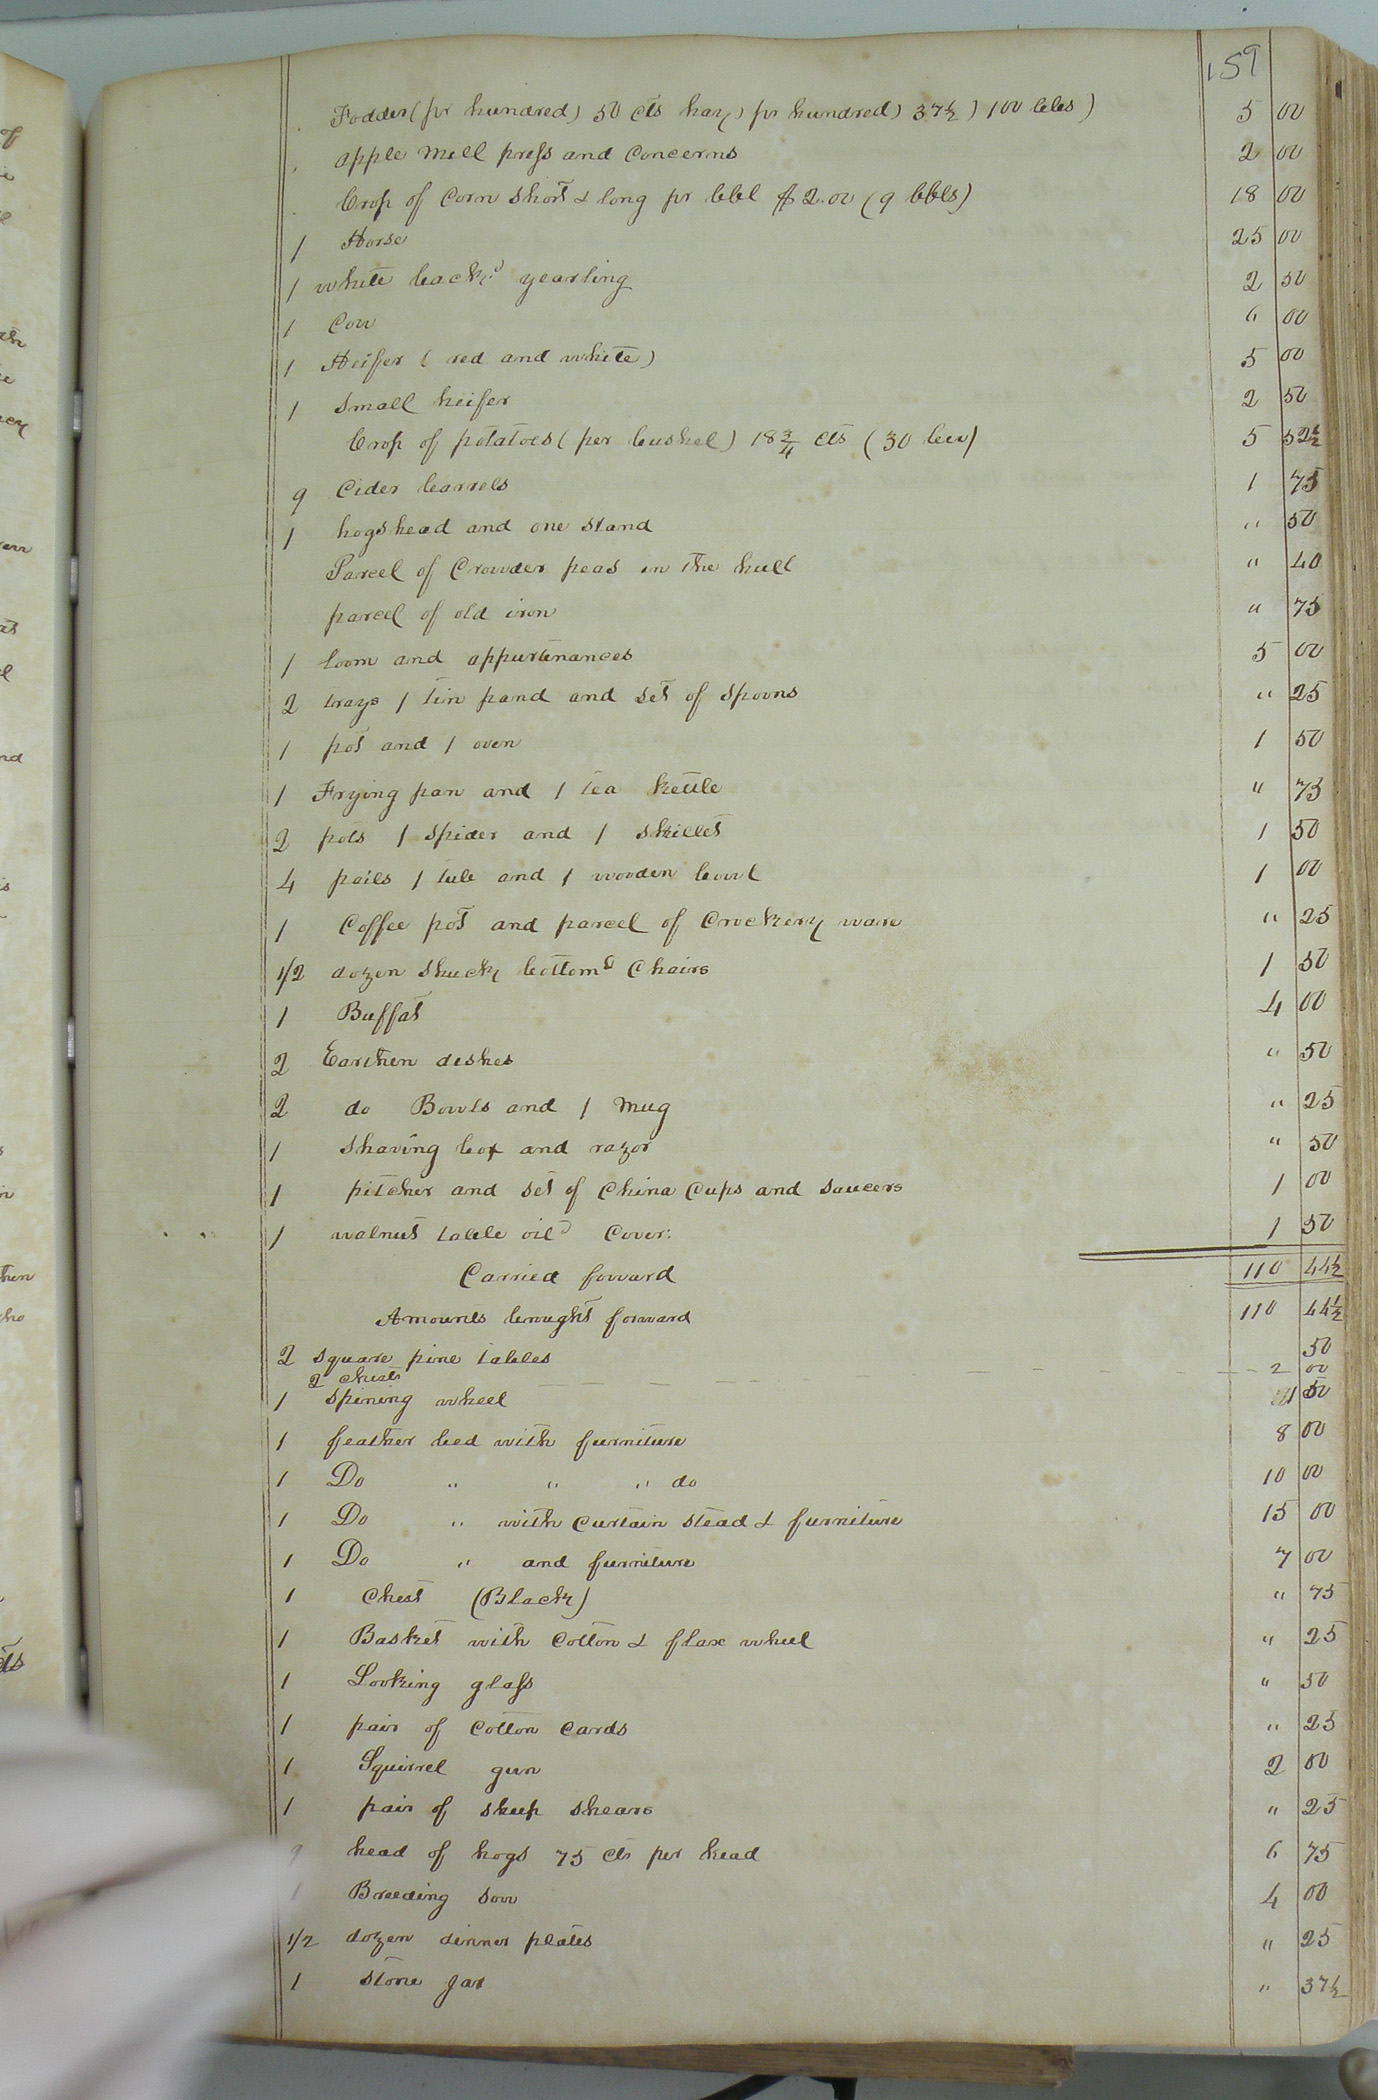 159
Fodder (pr hundred) 50 cts hay) pr hundred) 37½) 100 lbls) 5 00
apple mill press and Concerns 2 00
Crop of Corn Short & long pr bbl $2.00 (9 bbls) 18 00
1 Horse 25 00
1 white back.d yearling 2 50
1 Cow 6 00
1 Heifer (red and white) 5 00
1 small heifer 2 50
Crop of potatoes (per bushel) 18 3/4 cts (30 bu) 5 52½
9 Cider barrels 1 75
1 hogshead and one stand " 50
Parcel of Crowder peas in the hull " 40
parcel of old iron " 75
1 loom and appurtenances 5 00
2 trays 1 tin pand and set of Spoons " 25
1 pot and 1 oven 1 50
1 Frying pan and 1 tea kettle " 75
2 pots 1 spider and 1 skillet 1 50
4 pails 1 tub and 1 wooden bowl 1 00
1 Coffee pot and parcel of Crockery ware " 25
1/2 dozen shuck bottomd Chairs 1 50
1 Buffat 4 00
2 Earthen dishes " 50
2 do Bowls and 1 mug " 25
1 shaving box and razor " 50
1 pitcher and set of China Cups and saucers 1 00
1 walnut table oild Cover: 1 50
Carried forward 110 44½
Amounts brought forward 110 44½
2 square pine tables 50
2 chests 2 00
1 spining wheel 1 50
1 feather bed with furniture 8 00
1 Do " " " do 10 00
1 Do " with Curtain stead & furniture 15 00
1 Do " and furniture 7 00
1 Chest (Black) " 75
1 Basket with Cotton & flax wheel " 25
1 Looking glass " 50
1 pair of Cotton Cards " 25
1 Squirrel gun 2 00
1 pair of sheep shears " 25
9 head of hogs 75 cts per head 6 75
1 Breeding sow 4 00
1/2 dozen dinner plates " 25
1 stone jar " 37½